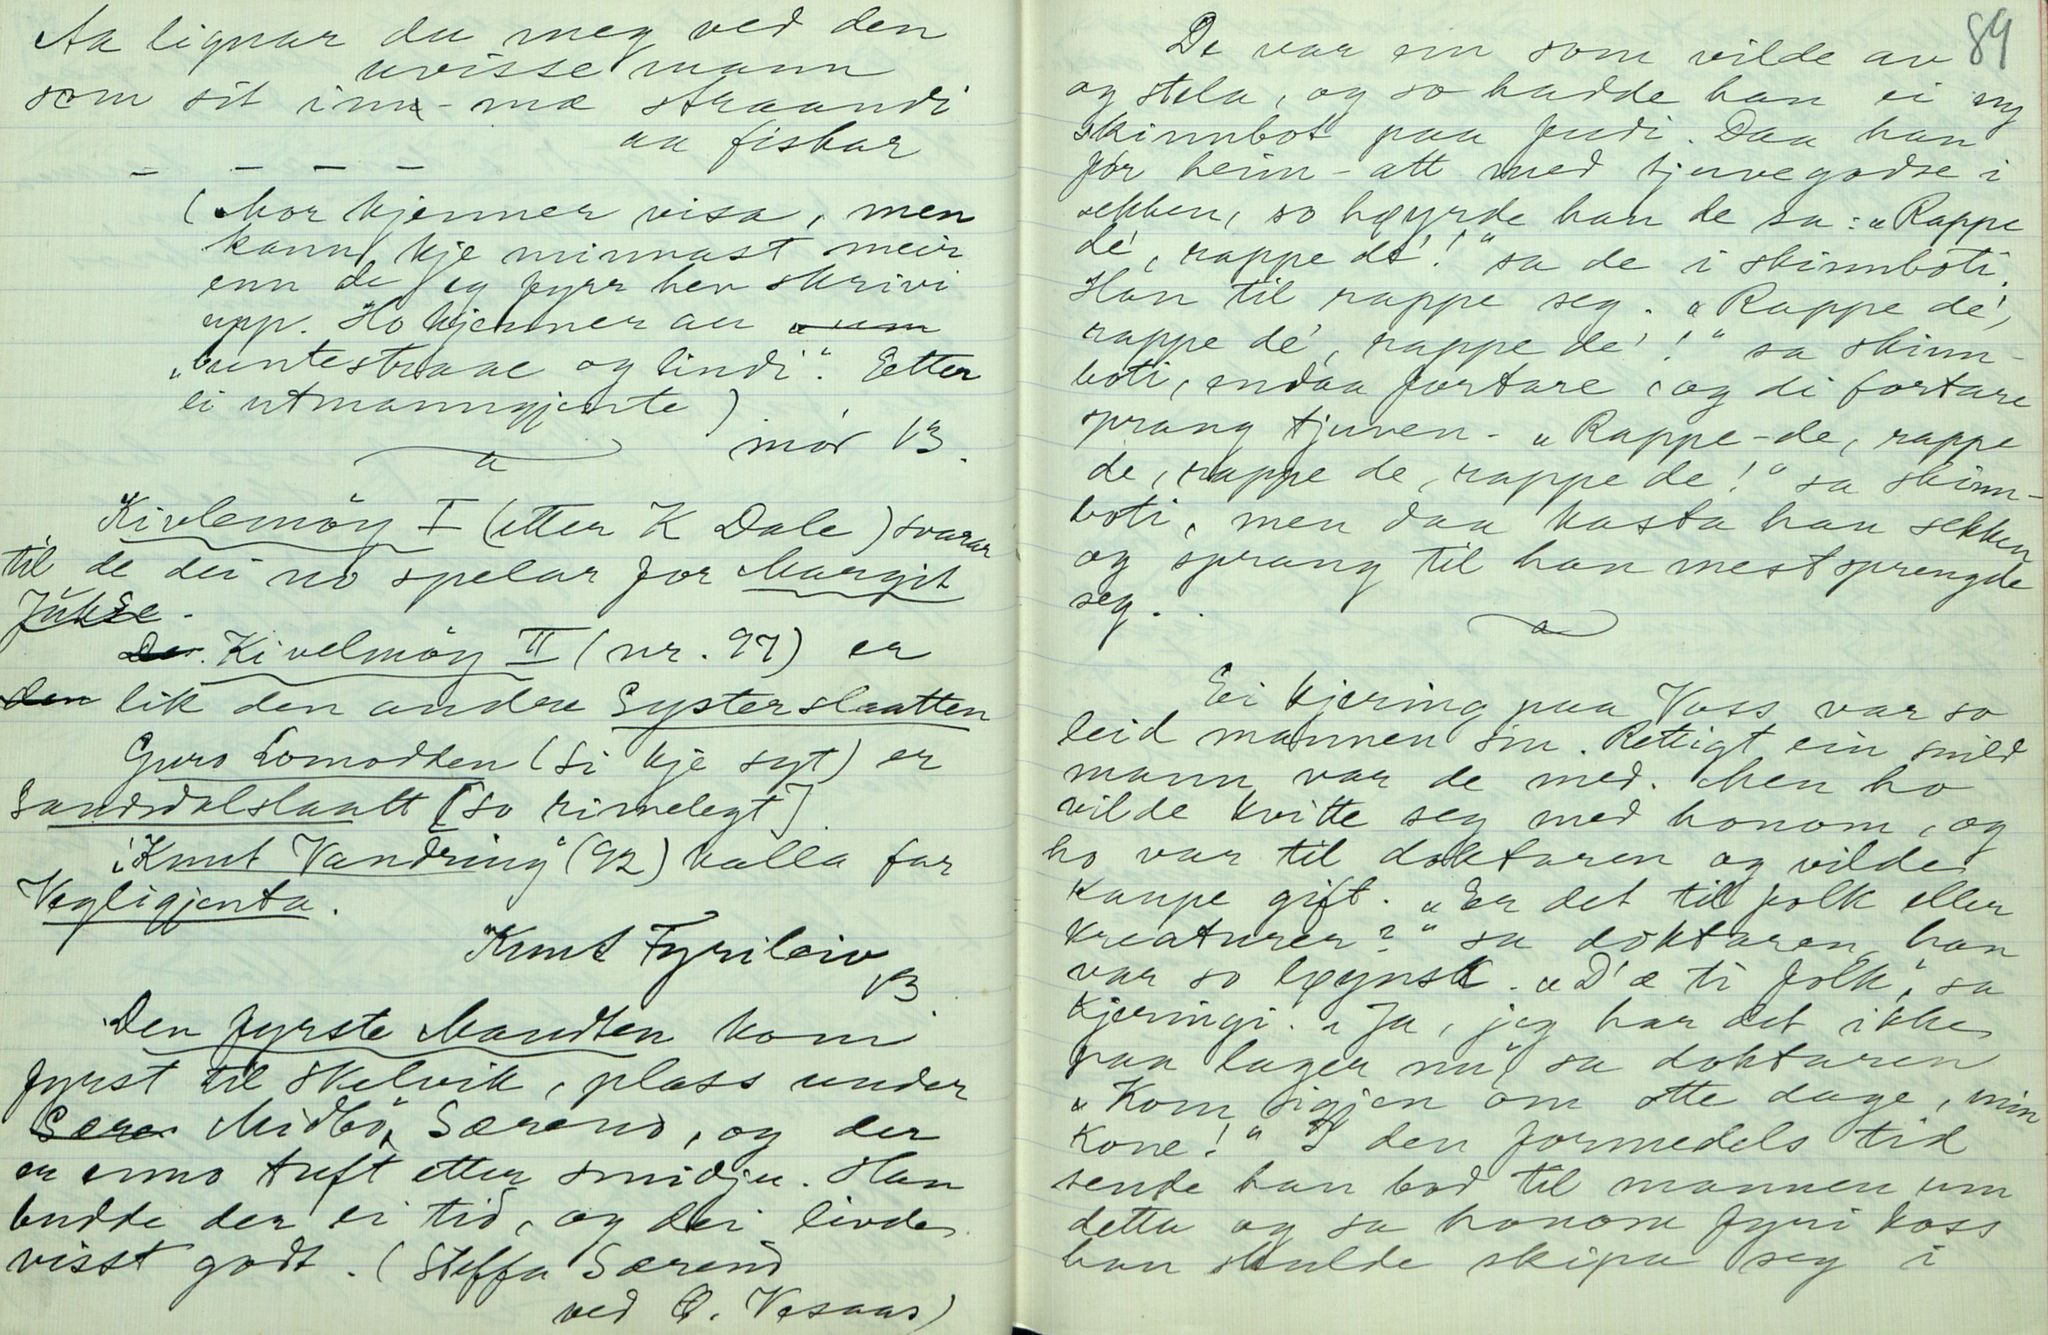 Aa lignar du meg ved den
uvisse mann
som sit inn-mæ straandi
aa fiskar
– – – –
(Mor kjenner visa, men
kann kje minnast meir
enn de eg fyrr hev skrivi
upp. Ho kjenner au um
"buntestraae og lindi". Etter
ei utmanngjente)
mor B.
Kivlemöy I (etter K Dale) svarar
til de dei no spelar for Margit
Jukse.
De Kivelmöy II (nr. 97) er
den lik den andre Systerslaatten
Guro Lomodden (Si kje syt) er
Sandsdalslaatt [so rimelegt]
i "Knut Vandring" (92) kalla far
Vegligjenta.
Knut Fyrileiv
B.
Den fyrste Mandten kom
fyrst til Skelvik, plass under
Sære Midbö, Særend, og der
er enno tuft etter smidju. Han
budde der ei tid, og dei livde
visst godt. (Steffa Særend
ved O. Vesaas)
89
De var ein som vilde av
og stela, og so hadde han ei ny
skinnbot paa fudi. Daa han
for heim-att med tjuvegodse i
sekken, so høyrde han de sa: "Rappe
dé, rappe dé!" sa de i skinnboti.
Han til rappe seg. "Rappe dé,
rappe dé, rappe dé!" sa skinn-
boti, endaa fortare, og di fortare
sprang tjuven. "Rappe-de, rappe
de, rappe de, rappe de!" sa skinn-
boti, men daa kasta han sekken
og sprang til han mest sprengde
seg.
Ei kjering paa Voss var so
leid mannen sin. Rettigt ein snild
mann var de med. Men ho
vilde kvitte seg med honom, og
ho var til doktaren og vilde
kaupe gift. "Er det til folk eller
kreaturer?" sa doktaren, han
var so løynsk. "D'æ ti folk", sa
kjeringi. "Ja, jeg har det ikke
paa lager nu" sa doktaren
"Kom igjen om otte dage, min
kone!" I den formedels tid
sende han bod til mannen um
detta og sa honom fyri koss
han skulde skipa seg i